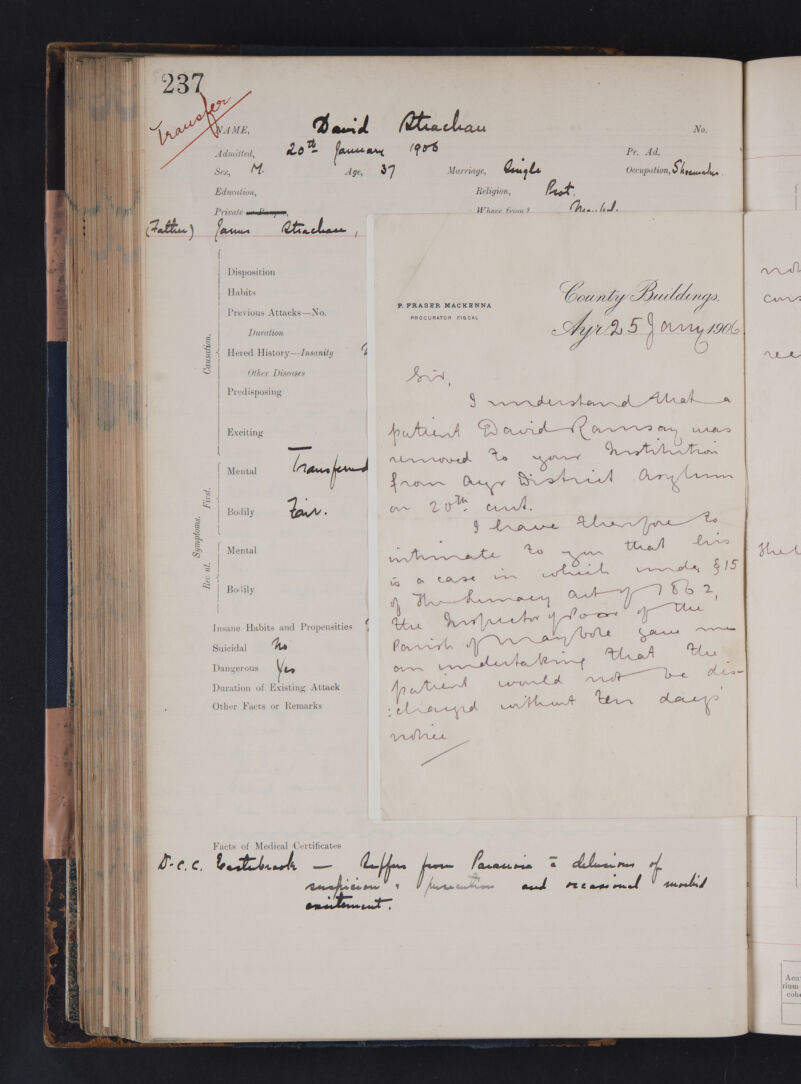 237
Transfer
NAME, David Strachan No.
Admitted, 20th January 1906 Pr. Ad.
Sex, M. Age, 37 Marriage, Single Occupation, Shoemaker.
Education, Religion, Prot.
Private or Pauper, Where from?
(Father) James Strachan,
Causation.
Disposition
Habits
Previous Attacks—No.
Duration
Hered History—Insanity
Other Diseases
Predisposing
Exciting
Symptoms.
First.
Mental Transferred
Bodily Fair.
Recent.
Mental
Bodily
Insane Habits and Propensities
Suicidal No
Dangerous Yes
Duration of Existing Attack
Other Facts or Remarks
P. FRASER MACKENNA
PROCURATOR FISCAL
County Buildings.
Ayr 25 Jany 1906
Sir,
I understand that a
patient David Ramsay was
removed to your Institution
from Ayr District Asylum
on 20th curt.
I have therefore to
intimate to you that his
is a case in which under § 15
of The Lunacy Act of 1862,
the Inspector of Poor of the
Parish of Maybole gave me
an undertaking that the
patient would not be dis-
:charged without ten days'
notice
Facts of Medical Certificates
Dr. C. C. Easterbrook — Suffers from Paranoia c̄ delusions of
suspicion & persecution and occasional morbid
excitement.
not
cons
rec
the
Acu
rium
cohe